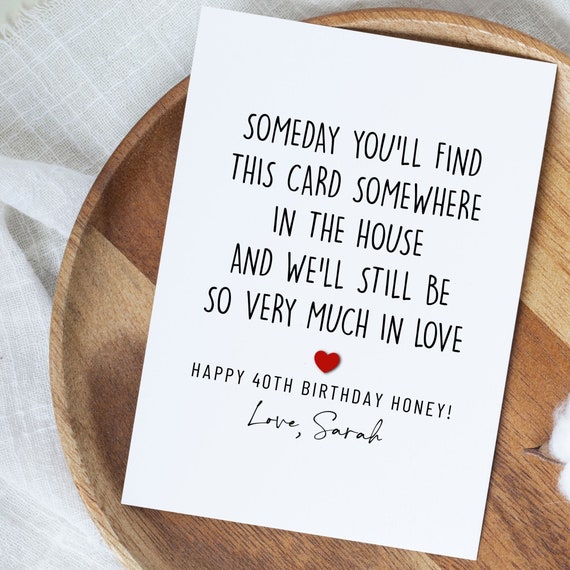 SOMEDAY YOU'LL FIND
THIS CARD SOMEWHERE
IN THE HOUSE
AND WE'LL STILL BE
SO VERY MUCH IN LOVE
HAPPY 40TH BIRTHDAY HONEY!
Love, Sarah